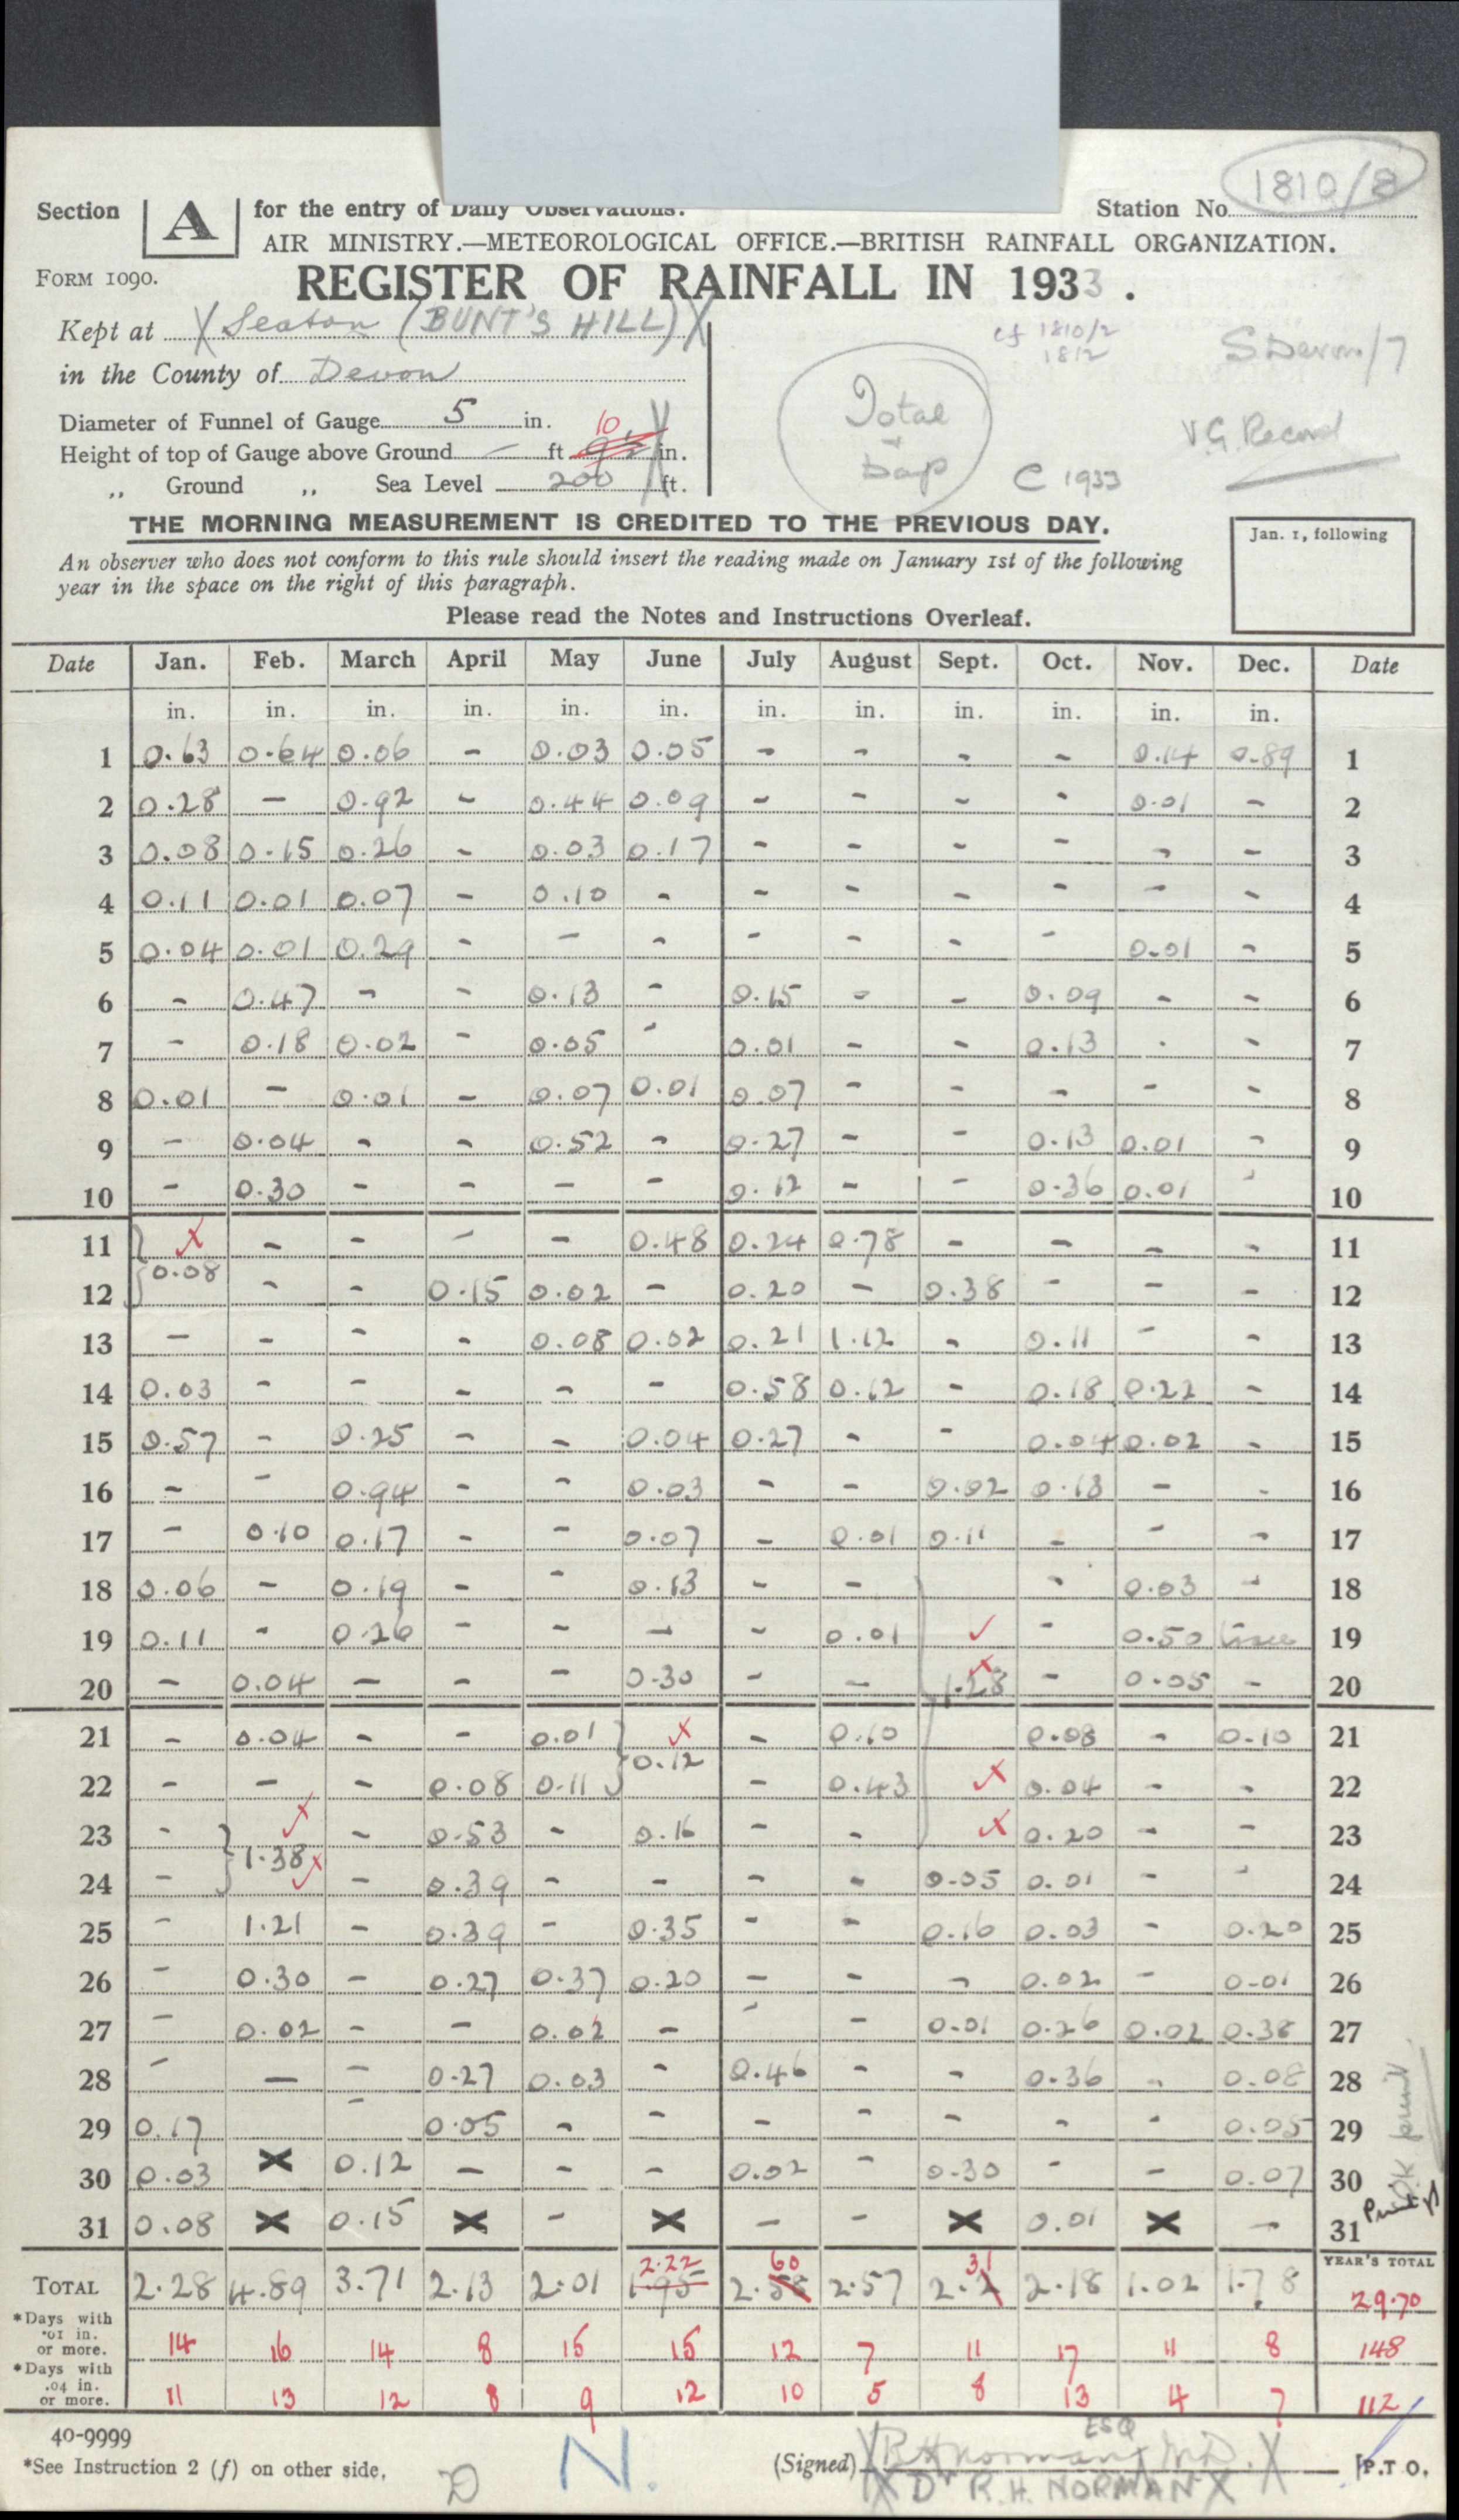 1810/8
Section A for the entry of Daily Observations. Station No.
AIR MINISTRY.—METEOROLOGICAL OFFICE.—BRITISH RAINFALL ORGANIZATION.
FORM 1090.
REGISTER OF RAINFALL IN 1933.
Kept at Seaton (BUNT'S HILL)
cf 1810/2
1812
S. Devon/7
in the County of Devon
Diameter of Funnel of Gauge 5 in.
Total
Dap
V.G. Record
10
Height of top of Gauge above Ground — ft 9½ in.
C 1933
,, Ground ,, Sea Level 200 ft.
THE MORNING MEASUREMENT IS CREDITED TO THE PREVIOUS DAY.
Jan. 1, following
An observer who does not conform to this rule should insert the reading made on January 1st of the following
year in the space on the right of this paragraph.
Please read the Notes and Instructions Overleaf.
Date Jan. Feb. March April May June July August Sept. Oct. Nov. Dec. Date
in. in. in. in. in. in. in. in. in. in. in. in.
1 0.63 0.64 0.06 - 0.03 0.05 - - - - 0.14 0.89 1
2 0.28 - 0.92 - 0.44 0.09 - - - - 0.01 - 2
3 0.08 0.15 0.26 - 0.03 0.17 - - - - - - 3
4 0.11 0.01 0.07 - 0.10 - - - - - - - 4
5 0.04 0.01 0.29 - - - - - - - 0.01 - 5
6 - 0.47 - - 0.13 - 0.15 - - 0.09 - - 6
7 - 0.18 0.02 - 0.05 - 0.01 - - 0.13 - - 7
8 0.01 - 0.01 - 0.07 0.01 0.07 - - - - - 8
9 - 0.04 - - 0.52 - 0.27 - - 0.13 0.01 - 9
10 - 0.30 - - - - 0.12 - - 0.36 0.01 - 10
11 - - - - 0.48 0.24 0.78 - - - - 11
0.08
12 - - 0.15 0.02 - 0.20 - 0.38 - - - 12
13 - - - - 0.08 0.02 0.21 1.12 - 0.11 - - 13
14 0.03 - - - - - 0.58 0.12 - 0.18 0.22 - 14
15 0.57 - 0.25 - - 0.04 0.27 - - 0.04 0.02 - 15
16 - - 0.94 - - 0.03 - - 0.02 0.13 - - 16
17 - 0.10 0.17 - - 0.07 - 0.01 0.11 - - - 17
18 0.06 - 0.19 - - 0.13 - - - 0.03 - 18
19 0.11 - 0.26 - - - - 0.01 - 0.50 trace 19
20 - 0.04 - - - 0.30 - - 1.28 - 0.05 - 20
21 - 0.04 - - 0.01 - 0.10 0.08 - 0.10 21
0.12
22 - - - 0.08 0.11 - 0.43 0.04 - - 22
23 - - 0.53 - 0.16 - - 0.20 - - 23
1.38
24 - - 0.39 - - - - 0.05 0.01 - - 24
25 - 1.21 - 0.39 - 0.35 - - 0.16 0.03 - 0.20 25
26 - 0.30 - 0.27 0.37 0.20 - - - 0.02 - 0.01 26
27 - 0.02 - - 0.02 - - - 0.01 0.26 0.02 0.38 27
28 - - - 0.27 0.03 - 0.46 - - 0.36 - 0.08 28
29 0.17 - 0.05 - - - - - - - 0.05 29
30 0.03 × 0.12 - - - 0.02 - 0.30 - - 0.07 30
31 0.08 × 0.15 × - × - - × 0.01 × - 31
YEAR'S TOTAL
2.22 60 31
TOTAL 2.28 4.89 3.71 2.13 2.01 1.95 2.58 2.57 2.2 2.18 1.02 1.78 29.70
*Days with
.01 in.
or more. 14 16 14 8 15 15 12 7 11 17 11 8 148
*Days with
.04 in.
or more. 11 13 12 8 9 12 10 5 8 13 4 7 112
40-9999
*See Instruction 2 (f) on other side.
D
N.
ESQ
(Signed) R H Norman M.D.
[P.T O.
Dr R.H. NORMAN